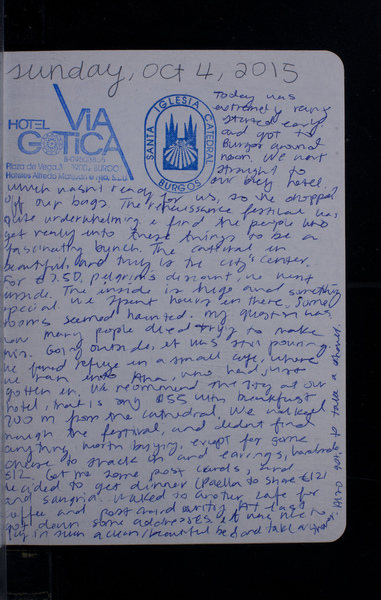 Sunday, Oct 4, 2015
HOTEL VIA
GOTICA
Plaza de Vega, 3
SANTA IGLESIA CATEDRAL
BURGOS
Today was
extremely rainy
started early
and got to
Burgos around
noon. We went
straight to
our Bkg hotel,
which wasn't ready for us, so we dropped
off our bags. The renaissance festival was
quite underwhelming. I find the people who
get really into these things to be a
fascinating bunch. The cathedral is
beautiful, and truly is the city center.
For €3.50, pilgrims discount, we went
inside. The inside is huge and something
special. We spent hours in there. Some
rooms seemed haunted. My question was
how many people died trying to make
this. Going outside, it was still pouring.
We found refuge in a small cafe, where
we ran into Ana, who had just
gotten in. We recommend she stay at our
hotel, that is only €55 with breakfast
200 m from the cathedral. We walked
through the festival, and didn't find
anything worth buying, except for some
cheese to snack on and earrings, handmade
€12. Got me some post cards, and
decided to get dinner (Paella to share €12)
and sangria. Walked to another cafe for
coffee and post card writing. At last
got down some addresses. It was nice to
lay in such a clean/beautiful bed and take a shower.
to take a shower.